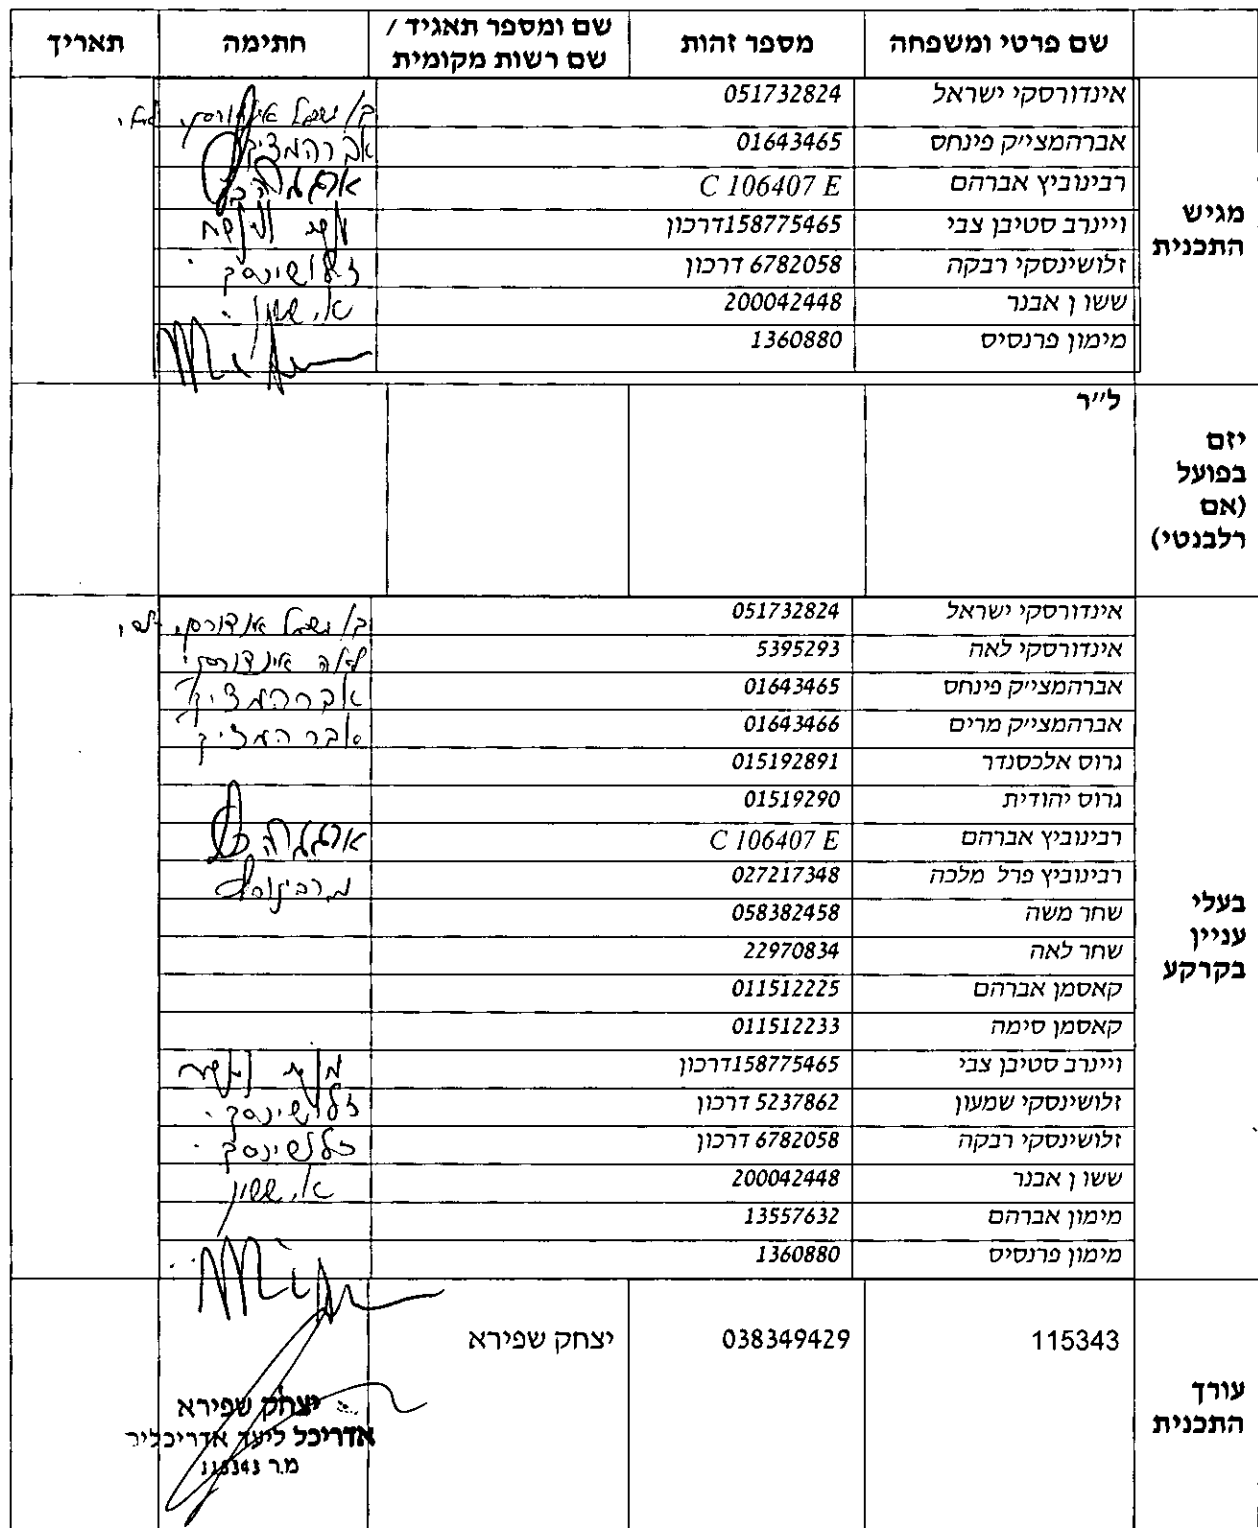 שם פרטי ומשפחה מספר זהות שם ומספר תאגיד / שם רשות מקומית חתימה תאריך
מגיש התכנית
אינדורסקי ישראל 051732824
אברהמצי׳ק פינחס 01643465 אברהמציק
רבינוביץ אברהם C 106407 E
ויינרב סטיבן צבי 158775465דרכון
זלושינסקי רבקה 6782058 דרכון זלושינסקי
ששו ן אבנר 200042448 א. ששון
מימון פרנסיס 1360880
יזם בפועל (אם רלבנטי)
ל״ר
בעלי עניין בקרקע
אינדורסקי ישראל 051732824
אינדורסקי לאה 5395293 לאה אינדורסקי
אברהמצי׳ק פינחס 01643465 אברהמציק
אברהמצי׳יק מרים 01643466 אברהמציק
גרוס אלכסנדר 015192891
גרוס יהודית 01519290
רבינוביץ אברהם C 106407 E
רבינוביץ פרל מלכה 027217348
שחר משה 058382458
שחר לאה 22970834
קאסמן אברהם 011512225
קאסמן סימה 011512233
ויינרב סטיבן צבי 158775465דרכון
זלושינסקי שמעון 5237862 דרכון זלושינסקי
זלושינסקי רבקה 6782058 דרכון זלושינסקי
ששו ן אבנר 200042448 א. ששון
מימון אברהם 13557632
מימון פרנסיס 1360880
עורך התכנית
115343 038349429 יצחק שפירא
יצחק שפירא
אדריכל ליעד אדריכלים
מ.ר 115343